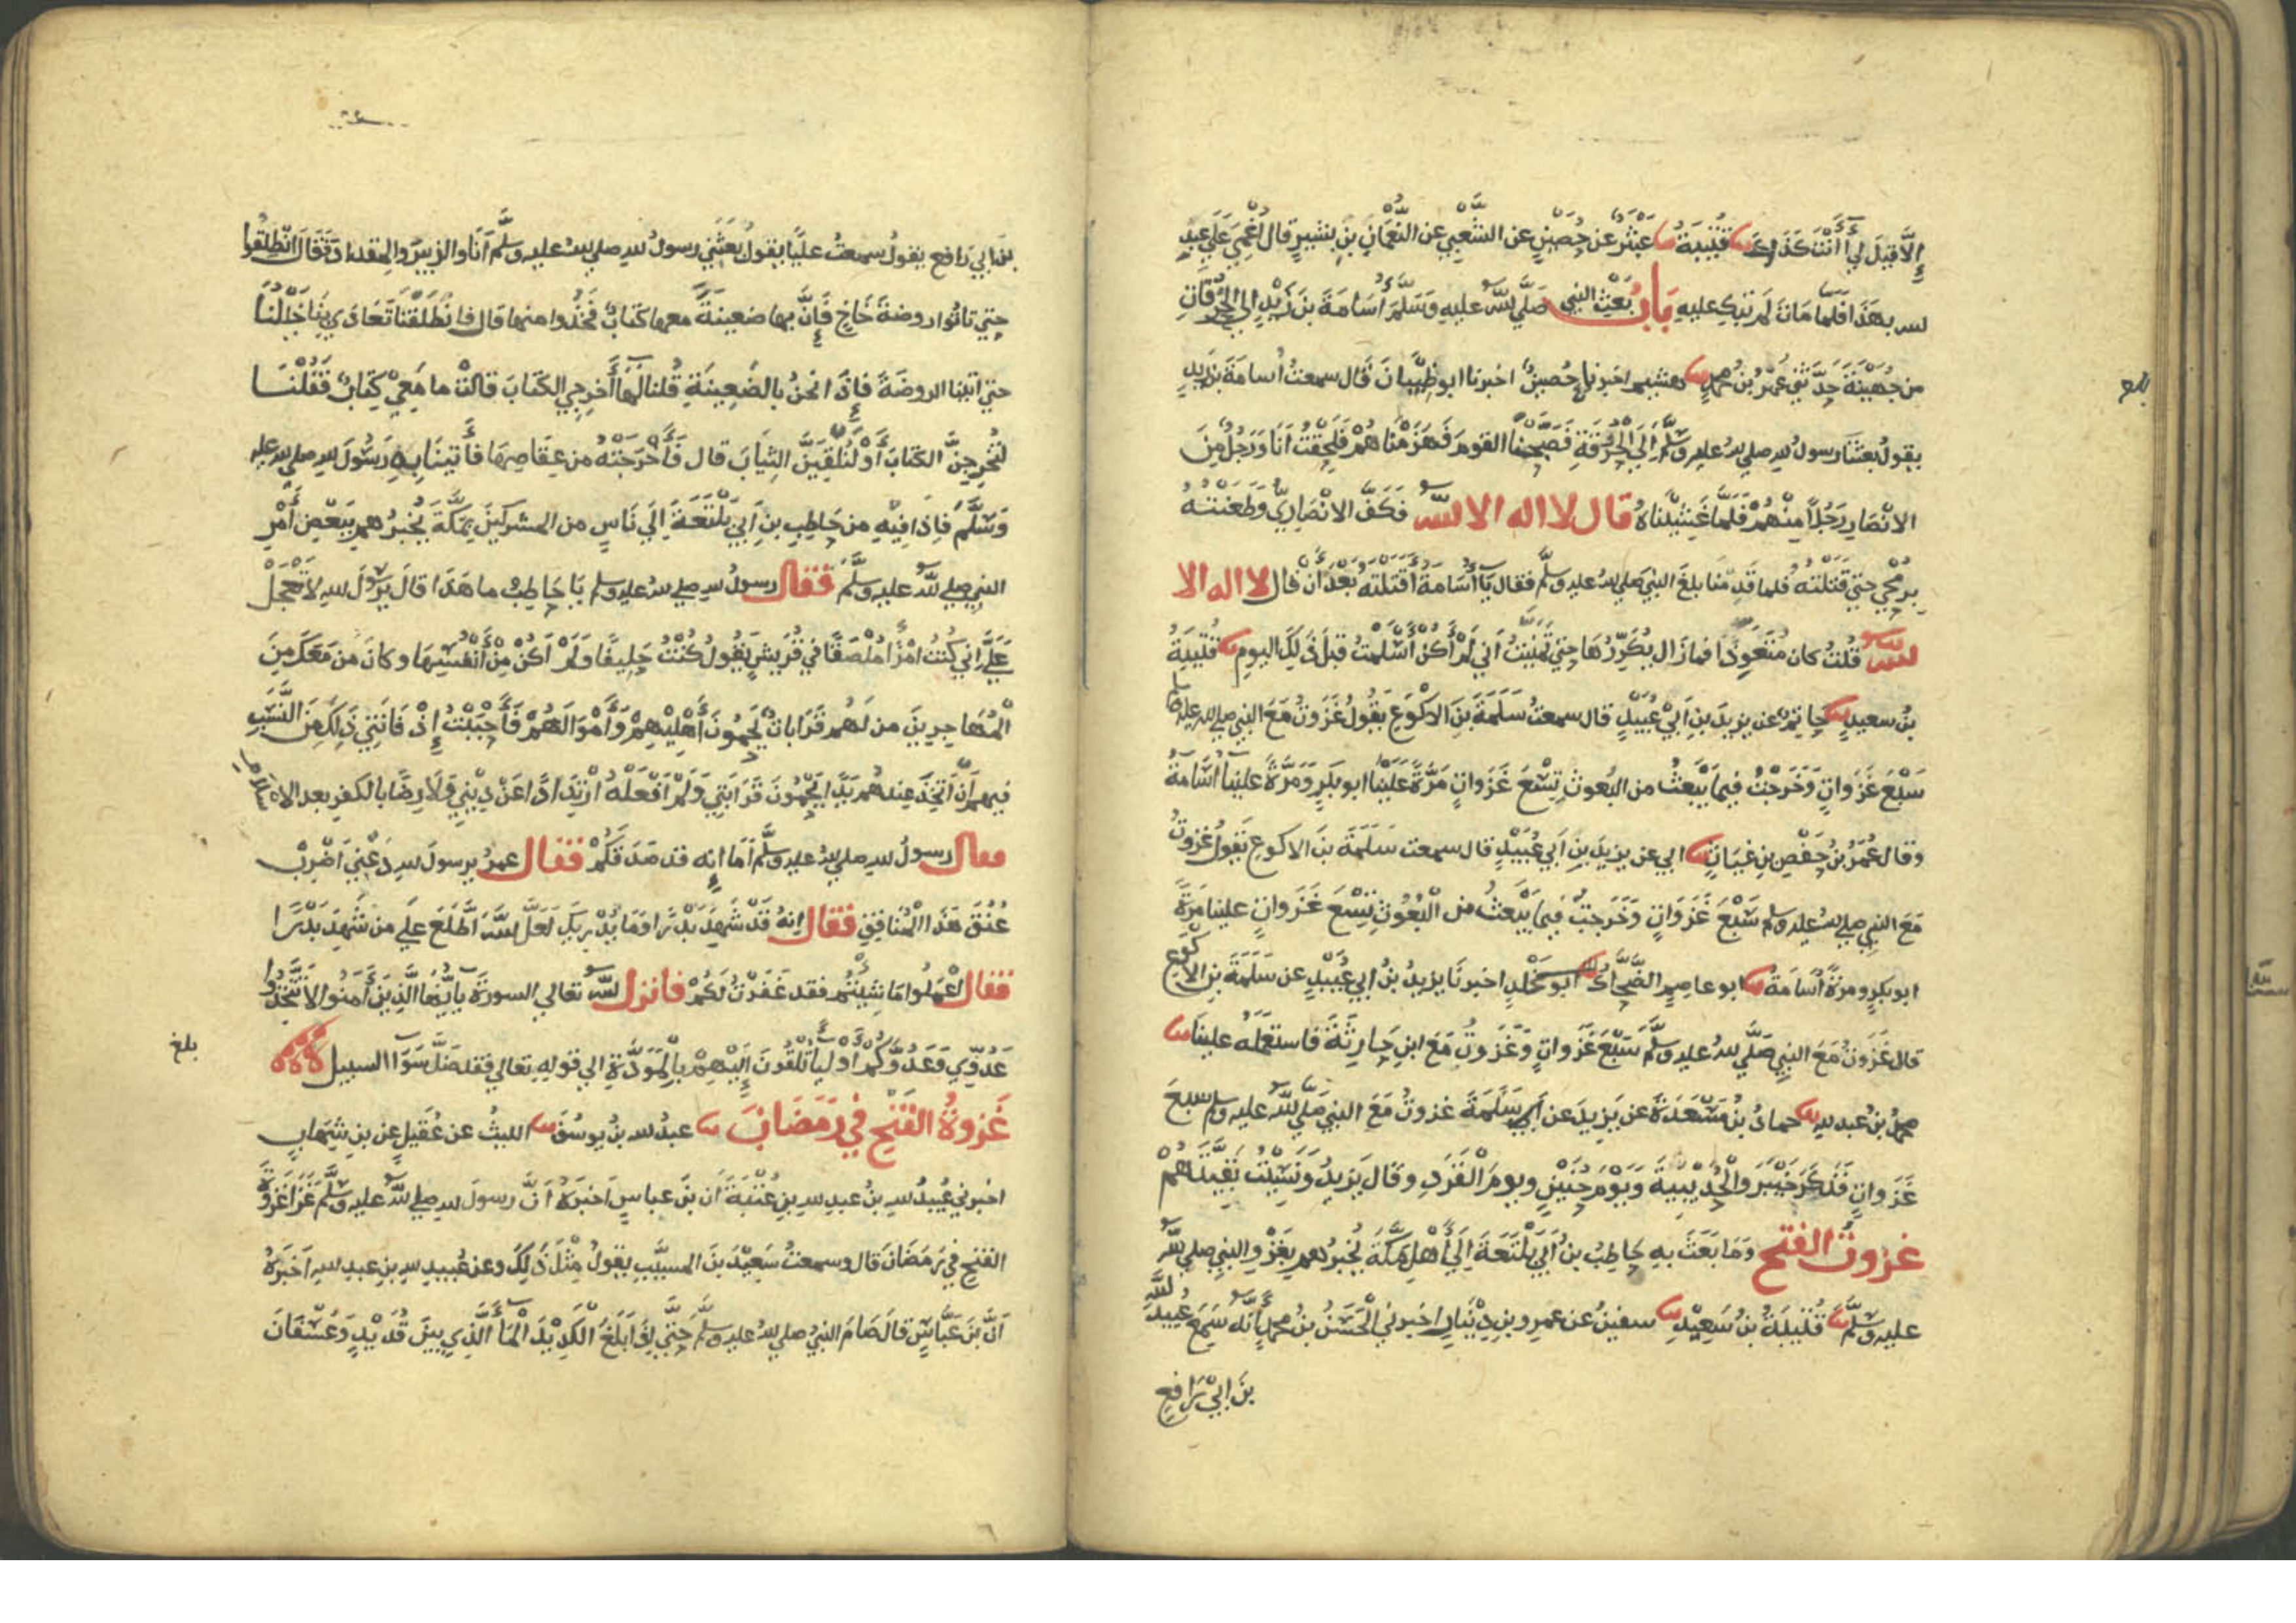 إِلَّا قِيلَ لِي أَأَنْتَ كَذَلِكَ ثنا قُتَيْبَةُ ثنا عَبْثَرٌ عن حُصَيْنٍ عن الشَّعْبِي عن النُّعْمَانِ بنِ بشيرٍ قال أُغْمِيَ عَلَى عبدِ
الله بهَذَا فلما مَاتَ لم تبكِ عليه بَابُ بَعْثِ النبي صَلَّى الله عليه وَسَلَّمَ أُسَامَةَ بنَ زَيْدٍ الي الحُرُقَاتِ
من جُهَيْنَةَ حَدَّثني عَمْرُو بنُ محمدٍ ثنا هشيم اخبرنا حُصينٌ اخبرنا ابو ظَبْيَانَ قَال سمعتُ أُسامةَ بنَ زيدٍ
يقولُ بعثنا رسولُ الله صلى الله عليه وسلَّم إلَى الْحُرَقَةِ فَصَبَّحْنَا القومَ فَهَزَمْنَاهُمْ فَلَحِقْتُ أَنَا وَرَجُلٌ مِنَ
الانْصَارِ رَجُلًا مِنْهُمْ فَلَمَّا غَشِيْنَاهُ قال لا اله الا الله فَكَفَّ الانْصَارِيُّ وَطَعَنْتُهُ
بِرُمْحِي حتي قَتَلْتُهُ فلما قَدِمْنَا بلغَ النبيَ صلى الله عليه وسلَّم فقال يَا أُسَامَةُ أَقَتَلْتَهُ بَعْدَ أَنْ قال لا اله الا
الله قُلتُ كان مُتَعَوِّذًا فما زَال يُكَرِّرُهَا حتي تَمَنَّيْتُ أني لَمْ أَكُنْ أَسْلَمْتُ قبلَ ذَلِكَ اليومِ ثنا قُتَيْبَةُ
بنُ سعيدٍ ثنا حَاتِمٌ عن يزيدَ بنِ أَبِي عُبَيْدٍ قال سمعتُ سَلَمَةَ بنَ الاكْوَعِ يقولُ غَزَوتُ مَعَ النبي صلى الله عليه وسلم
سَبْعَ غَزَواتٍ وَخَرَجْتُ فيما يَبْعَثُ من البُعوثِ تِسْعَ غَزَواتٍ مَرَّةً عَلَيْنَا ابو بكرٍ وَمَرَّةً علينا أُسَامَةُ
وقال عُمَرُ بنُ حَفْصِ بنِ غيَاثٍ ثنا ابي عن يزيدَ بنِ أَبي عُبَيْدٍ قال سمعت سَلَمَةَ بنَ الاكوعِ يَقولُ غزوتُ
مَعَ النبي صلى الله عليه وسلم سَبْعَ غَزَوَاتٍ وَخَرَجتُ فيما يَبْعَثُ من الْبُعُوثِ تِسْعَ غَزَواتٍ علينا مَرَّةً
ابو بكرٍ ومرةً أُسَامَةُ ثنا ابو عاصِمٍ الضَّحَّاكُ بنُ مَخْلَدٍ اخبرنَا يزيدُ بنُ ابي عُبَيْدٍ عن سَلَمَةَ بنِ الاكْوَعِ
قال غَزَوتُ مَعَ النبي صَلَّى اللهُ عليه وسلَّم سَبْعَ غَزَواتٍ وَغَزَوتُ مَعَ ابنِ حَارِثَةَ فاستعْمَلَهُ علينا ثنا
محمدُ بنُ عبد اللهِ ثنا حمادُ بنُ مَسْعَدَةَ عن يَزِيدَ عن سَلَمَةَ غزوتُ مَعَ النبي صَلَّى الله عليه وسلم سبعَ
غَزَواتٍ فَذَكَرَ خَيْبَرَ وَالْحُدَيْبِيَةَ وَيَوْمَ حُنَيْنٍ ويومَ الْقَرَدِ وَقَال يَزِيدُ وَنَسِيْتُ بَقِيَّتَهُمْ
غزوةُ الفتح وَمَا بَعَثَ بِهِ حَاطِبُ بنُ أَبِي بَلْتَعَةَ إِلَى أَهْلِ مَكَّةَ يُخْبِرُهم بِغَزْوِ النبي صلى اللهُ
عليه وسلَّم ثنا قُتَيْبَةُ بنُ سَعِيْدٍ ثنا سفينُ عن عمرِو بنِ دِيْنَارٍ اخبرني الْحَسَنُ بنُ محمدٍ أَنَّهُ سَمِعَ عُبيدَ الله
بنَ ابي رَافعٍ
بنَ ابي رَافعٍ يقولُ سمعتُ عليًّا يقولُ بعَثَنِي رسولُ اللهِ صلى الله عليه وسلَّم أَنَا والزبيرَ والمقدادَ فَقَالَ انْطَلِقُوا
حتي تاتُوا روضةَ خَاخٍ فَإِنَّ بها ضعينَةً معها كتابٌ فَخُذُوا منها قال فانْطَلَقْنَا تَعَادَى بِنَا خَيْلُنَا
حتي اتينا الروضَةَ فإذَا نحنُ بالضَّعِينَةِ قُلنا لَهَا أَخرِجِي الكتابَ قالتْ ما مَعِيْ كِتَابٌ فَقُلْنَا
لَتُخْرِجِنَّ الكتابَ أَوْ لَنُلْقِيَنَّ الثِيَابَ قال فَأَخْرَجَتْهُ من عِقَاصِهَا فأَتَيْنَا بِهِ رَسُولَ اللهِ صلى الله عليه
وَسَلَّمَ فإذَا فيْهِ من حَاطِبِ بنِ أَبِي بَلْتَعَةَ إِلَى نَاسٍ من المشركينَ بمكَّةَ يُخْبِرُهم بِبَعْضِ أَمْرِ
النبي صلى الله عليه وسلَّم فقال رسولُ اللهِ صلى الله عليه وسلم يَا حَاطِبُ ما هَذَا قالَ يَرَسُولَ اللهِ لا تَعْجَلْ
عَلَيَّ إني كُنتُ امْرَأً مُلْصَقًا في قُرَيشٍ يَقُولُ كُنْتُ حَلِيفًا وَلَمْ أَكُنْ مِنْ أَنْفُسِهَا وكانَ مَن مَعَكَ مِنَ
الْمُهَاجِرِينَ من لَهُم قَرَابَاتٌ يَحْمُونَ أَهْلِيْهِمْ وَأَمْوَالَهُمْ فَأَحْبَبْتُ إِذْ فَاتَنِي ذَلِكَ مِنَ النَّسَبِ
فيهم أَنْ أَتَّخِذَ عِندهُم يَدًا يَحْمُونَ قَرَابَتِي وَلَمْ أَفْعَلْهُ ارْتِدَادًا عَنْ دِيْنِي وَلَا رِضًا بالكفرِ بعد الاسلام
فقال رسولُ اللهِ صلى الله عليه وسلَّم أَمَا إنه قد صَدَقَكُمْ فقال عمرُ يرسولَ اللهِ دَعْنِي أَضْرِبْ
عُنُقَ هَذَا الْمُنَافِقِ فقال إنهُ قَدْ شَهِدَ بَدْرًا وَمَا يُدْرِيكَ لَعَلَّ اللهَ اطَّلَعَ عَلَى من شَهِدَ بَدْرًا
فقال اعْمَلُوا مَا شِئْتُم فقد غَفَرْتُ لَكُمْ فانزل الله تعالي السورةَ يَأَيُّهَا الَّذِينَ أَمَنُوا لا تَتَّخِذُوا
عَدُوِّي وَعَدُوَّكُمْ أَوْلِيَا تُلْقُونَ إِلَيْهِمْ بِالْمَوَدَّةِ الي قوله تعالي فقد ضَلَّ سَوَا السبيل
بلغ
غَزوةُ الفَتْحِ في رَمَضَانَ ثنا عبدُ الله بنُ يوسُفَ ثنا الليثُ عن عُقَيلٍ عن بنِ شِهَابٍ
اخبرني عُبيدُ اللهِ بنُ عبدِ اللهِ بنِ عُتْبَةَ أن بنَ عباسٍ أخبَرَهُ أَنَّ رسولَ اللهِ صلى الله عليه وسلَّم غَزَا غزوةَ
الفتحِ في رَمَضَانَ قال وسمعتُ سَعِيْدَ بنَ المسيَّبِ يقولُ مِثْلَ ذَلِكَ وعن عُبيدِ اللهِ بنِ عبدِ اللهِ أخبَرَهُ
أَنَّ بنَ عَبَّاسٍ قالَ صَامَ النبيُ صلى الله عليه وسلَّم حَتَّى إِذَا بَلَغَ الْكَدِيْدَ الْمَا الَّذِي بينَ قُدَيْدٍ وَعُسْفَانَ